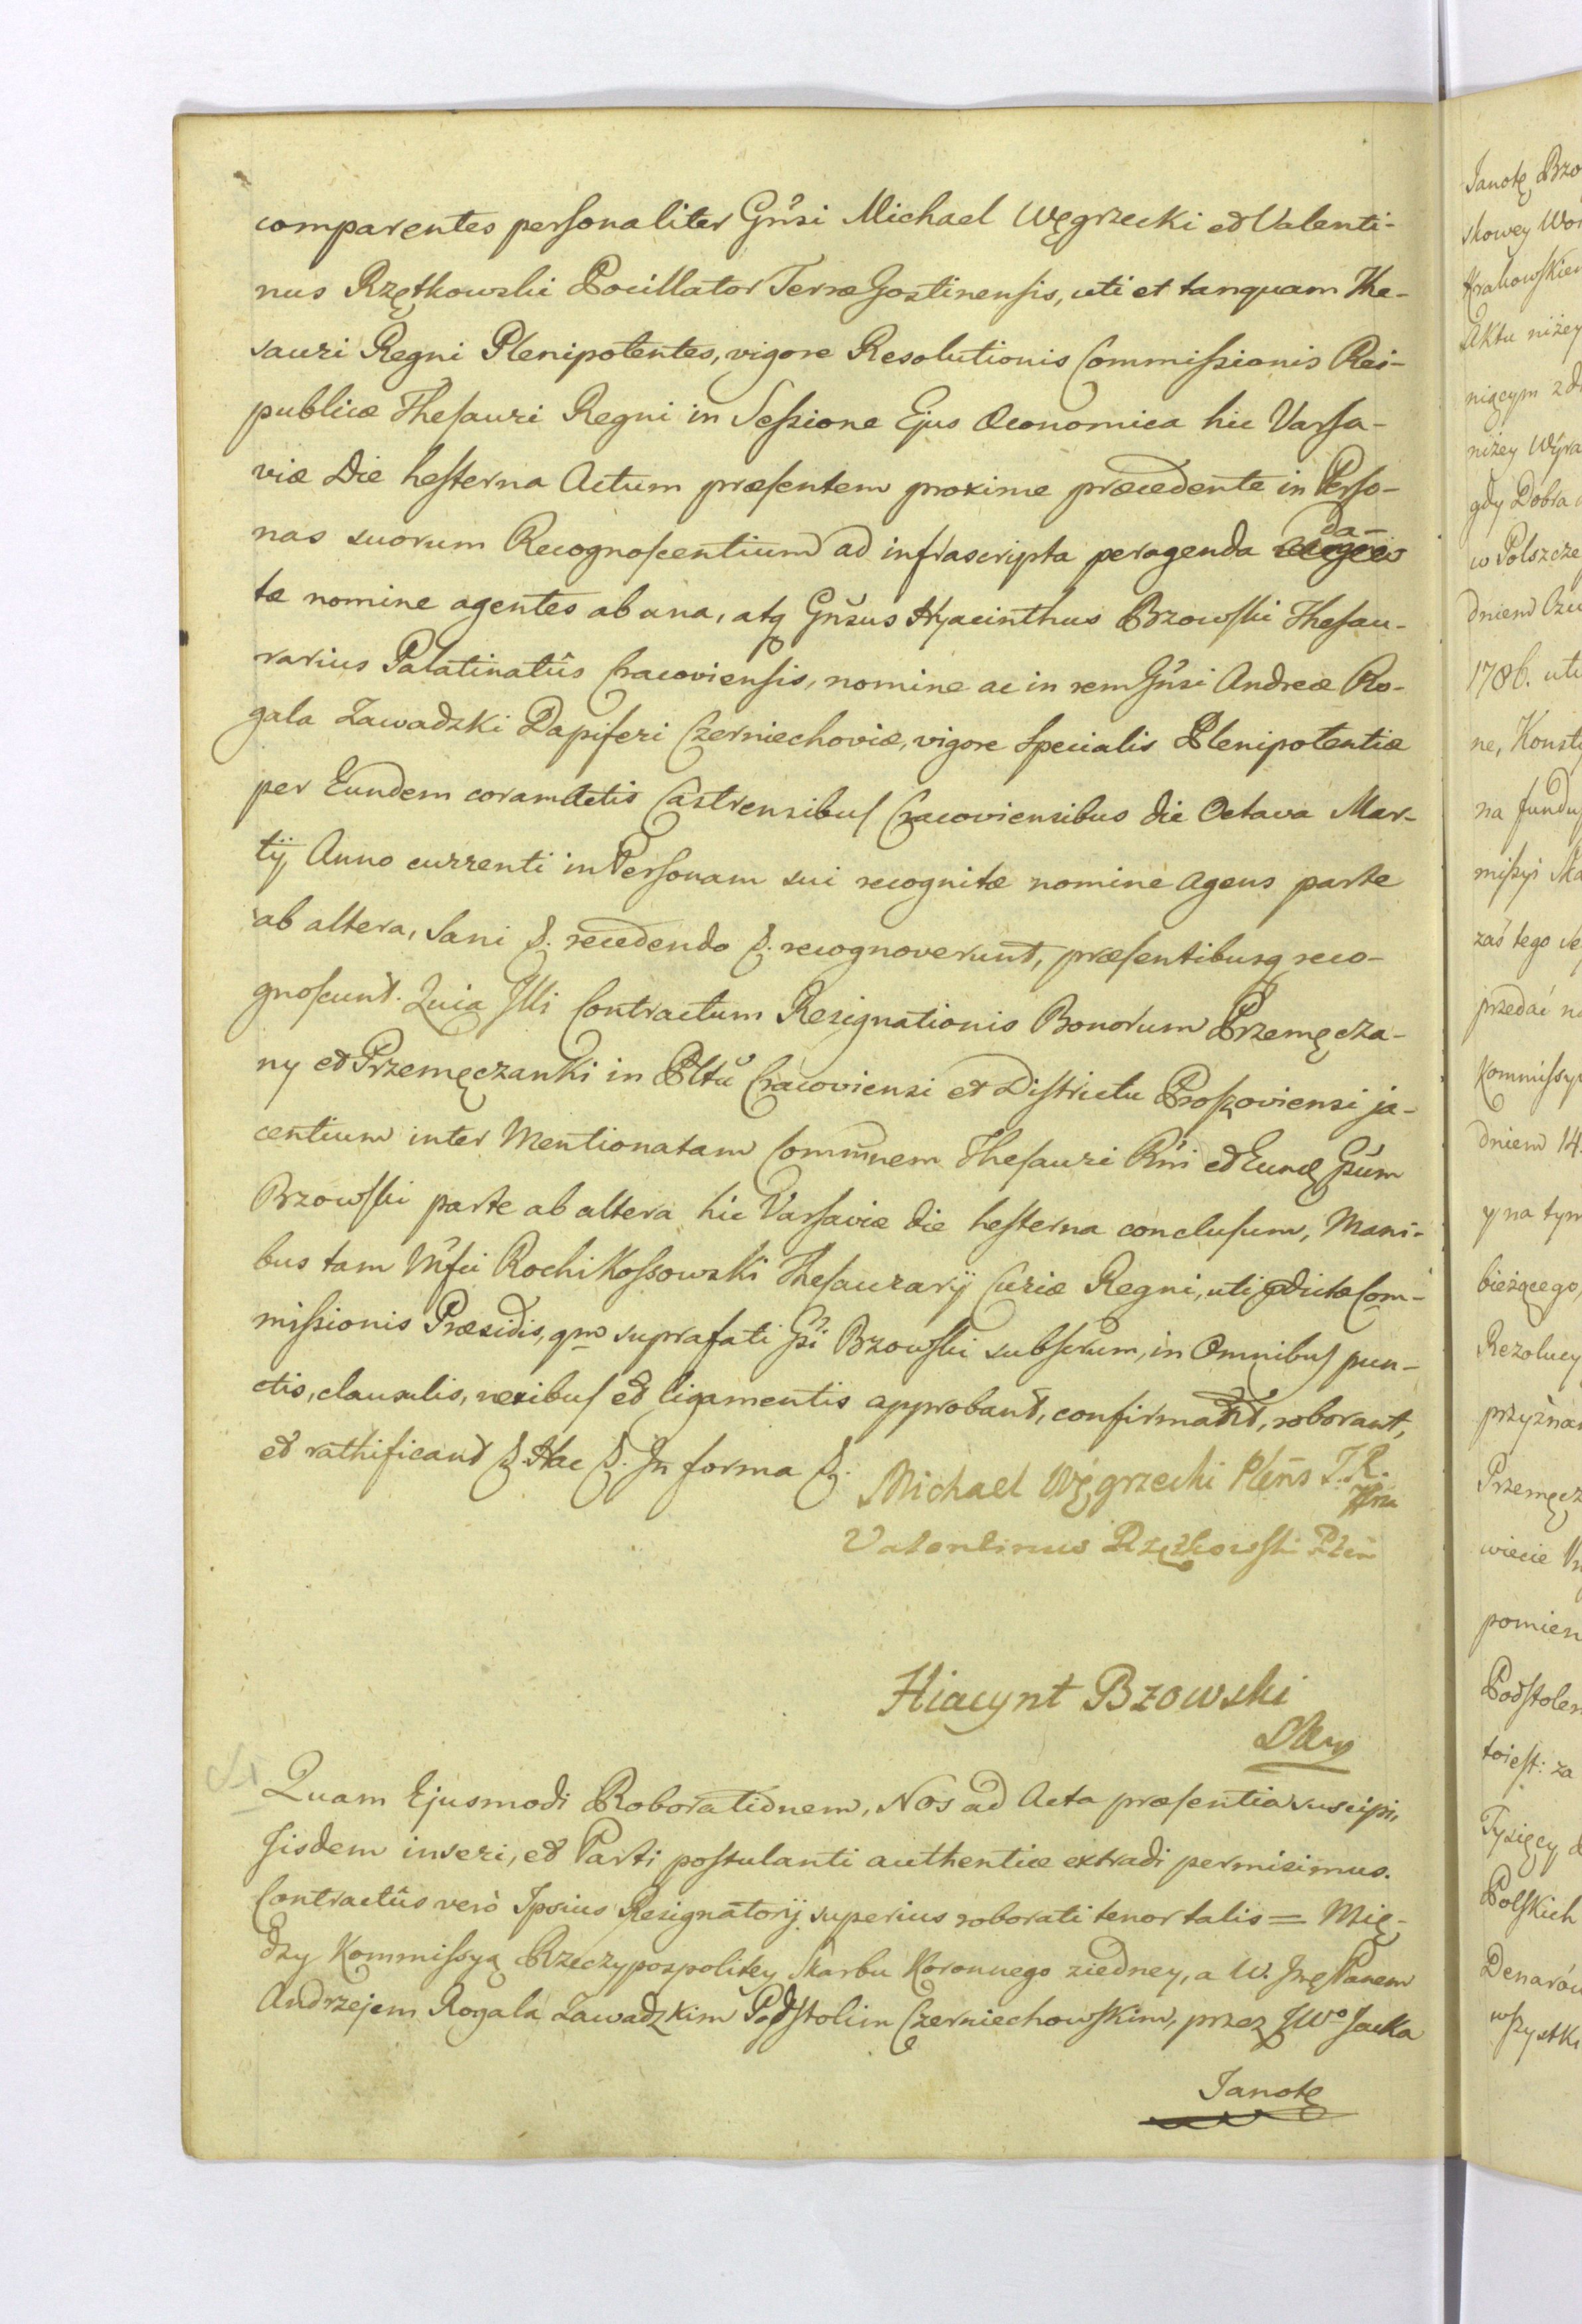 comparentes personaliter Gnsi Michael Węgrzecki et Valenti-
nus Rzętkowski Pocillator Terræ Gostinensis, uti et tanquam The-
sauri Regni Plenipotentes, vigore Resolutionis Commissionis Rei-
publicæ Thesauri Regni in Sessione Ejus Oeconomica hic Varsa-
viæ Die hesterna Actum præsentem proxime præcedente in Perso-
nas suorum Recognoscentium ad infrascripta peragenda da-
tæ nomine agentes ab una, atq Gnsus Hyacinthus Bzowski Thesau-
rarius Palatinatûs Cracoviensis, nomine ac in rem Gnsi Andreæ Ro-
gala Zawadzki Dapiferi Czerniechoviæ, vigore specialis Plenipotentiæ
per Eundem coram Actis Castrensibus Cracoviensibus die Octava Mar-
tij Anno currenti in Personam sui recognitæ nomine agens parte
ab altera, Sani &. recedendo &. recognoverunt, præsentibusq reco-
gnoscunt. Quia Illi Contractum Resignationis Bonorum Przemęcza-
ny et Przemęczanki in Pltu Cracoviensi et Districtu Proszoviensi ja-
centium inter Mentionatam Commnem Thesauri Rni et Eund Gsum
Bzowski parte ab altera hic Varsaviæ die hesterna conclusum, Mani-
bus tam Mfci Rochi Kossowski Thesaurarij Curiæ Regni, uti pdictæ Com-
missionis Præsidis, qm suprafati Gsi Bzowski subscrum, in Omnibus pun-
ctis, clausulis, nexibus et ligamentis approbant, confirmant, roborant,
et rathificant &. Hac &. In forma &.
Michael Węgrzecki Plens T.R.
Valentinus Rzętkowski Plen
Hiacynt Bzowski
Quam Ejusmodi Roborationem, Nos ad Acta præsentia suscipi,
Iisdem inseri, et Parti postulanti authentice extradi permisimus.
Contractûs verò Ipsius Resignatorij superius roborati tenor talis = Mię-
dzy Kommissyą Rzeczypospolitey Skarbu Koronnego ziedney, a W. Jmę Panem
Andrzejem Rogala Zawadzkim Podstolim Czerniechowskim, przez JWo Jacka
Janotę
Janotę Bzo
skowey Wo
Krakowskie
Aktu niżey
niącym zd
niżey Wyra
gdy Dobra
w Polszcze
dniem Czw
1786. uti
ne, Konsty
na fundu
missyi Ska
zaś tego
przedać na
Kommissy
dniem 14
y na tym
bieżącego,
Rezolucy
przyznan
Przemęcz
wiecie
pomien
Podstolen
toiest: za
Tysięcy
Polskich
Denarów
wszystki